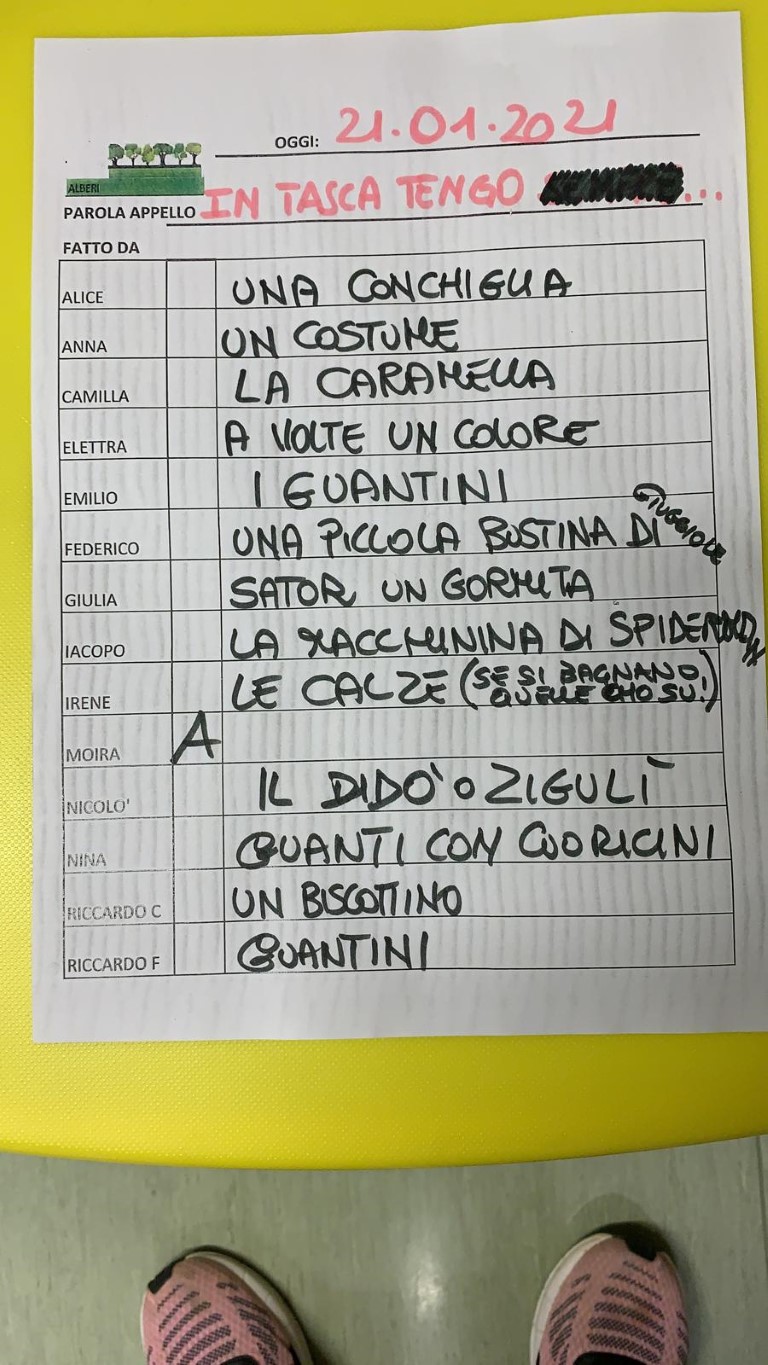 OGGI: 21.01.2021
ALBERI
PAROLA APPELLO IN TASCA TENGO ...
FATTO DA
ALICE UNA CONCHIGLIA
ANNA UN COSTUME
CAMILLA LA CARAMELLA
ELETTRA A VOLTE UN COLORE
EMILIO I GUANTINI
FEDERICO UNA PICCOLA BUSTINA DI GIUGGIOLE
GIULIA SATOR UN GORMITA
IACOPO LA MACCHININA DI SPIDERMAN
IRENE LE CALZE (SE SI BAGNANO QUELLE CHO SU!)
MOIRA A
NICOLO' IL DIDÒ O ZIGULÌ
NINA GUANTI CON CUORICINI
RICCARDO C UN BISCOTTINO
RICCARDO F GUANTINI